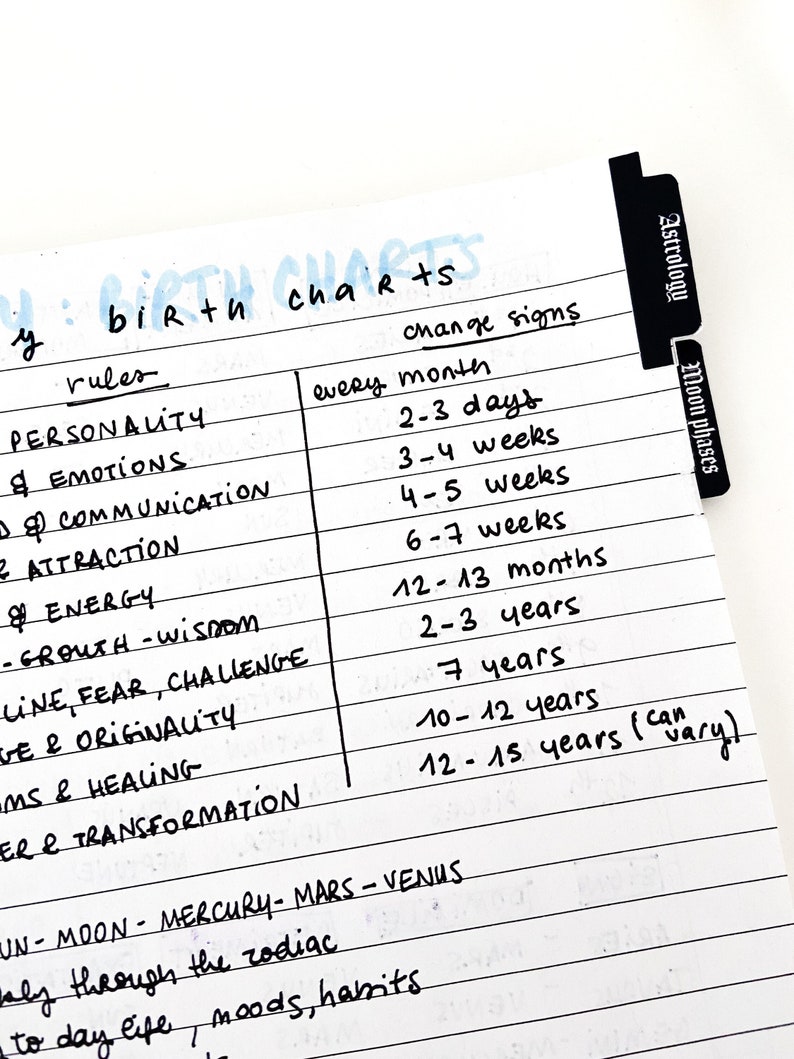 Y : BIRTH CHARTS
y birth charts
rules change signs
PERSONALITY every month
& EMOTIONS 2-3 days
D & COMMUNICATION 3-4 weeks
& ATTRACTION 4-5 weeks
& ENERGY 6-7 weeks
- GROWTH - WISDOM 12-13 months
LINE, FEAR, CHALLENGE 2-3 years
GE & ORIGINALITY 7 years
AMS & HEALING 10-12 years
ER & TRANSFORMATION 12-15 years (can vary)
UN - MOON - MERCURY - MARS - VENUS
through the zodiac
to day life, moods, habits
Astrology
Moon phases